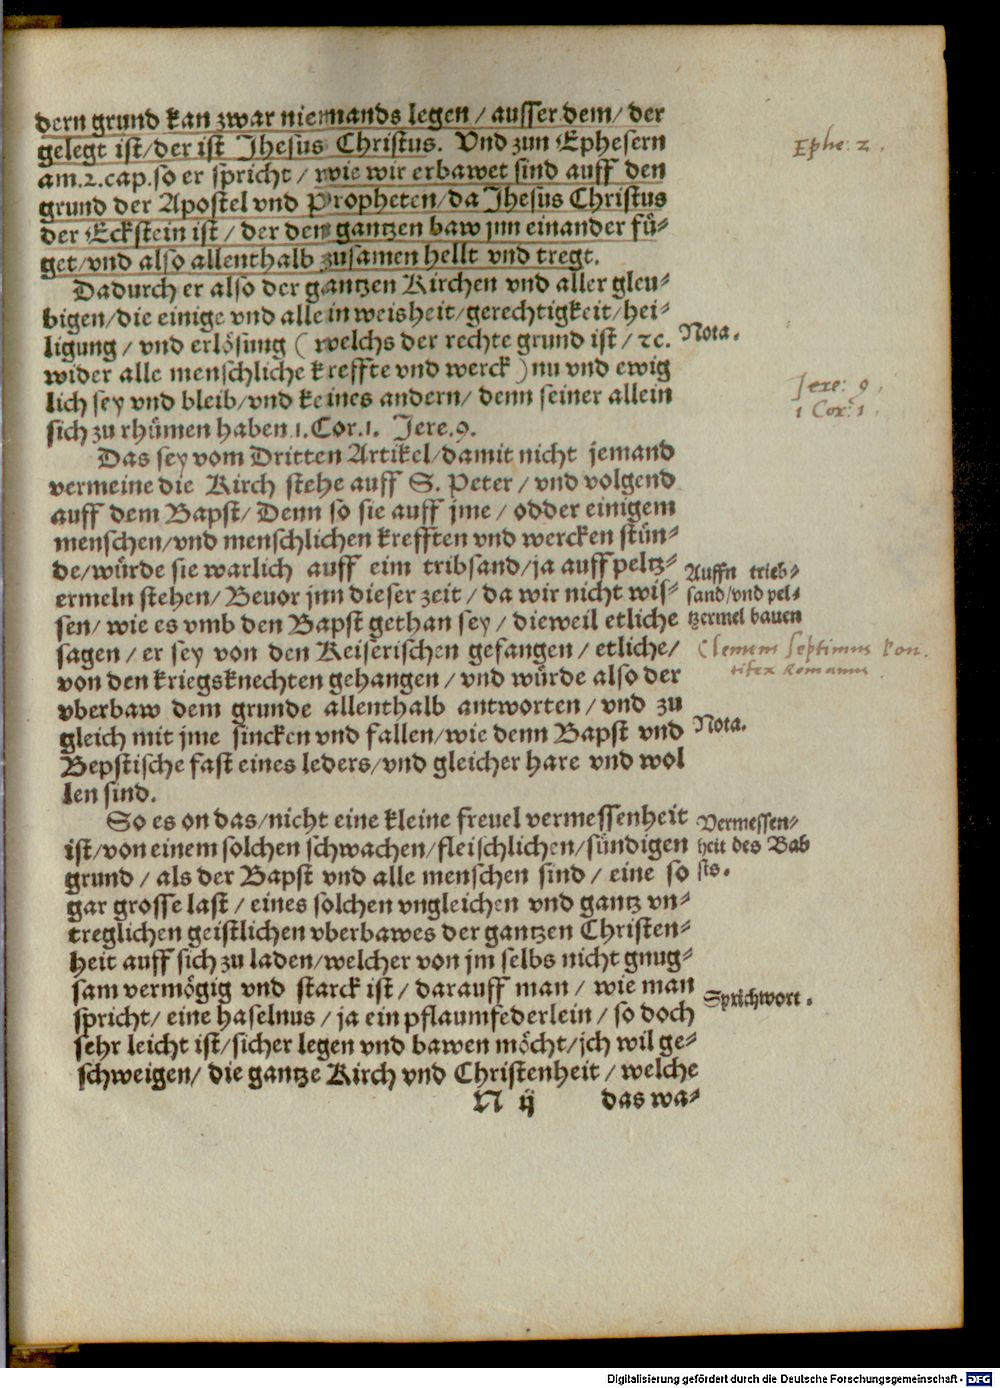 dern grund kan zwar niemands legen / ausser dem / der
gelegt ist / der ist Jhesus Christus. Vnd zun Ephesern
am.2.cap.so er spricht / wie wir erbawet sind auff den
grund der Apostel vnd Propheten / da Jhesus Christus
der Eckstein ist / der den gantzen baw jnn einander fü⸗
get / vnd also allenthalb zusamen hellt vnd tregt.
Ephe: 2.
Dadurch er also der gantzen Kirchen vnd aller gleu⸗
bigen / die einige vnd allein weisheit / gerechtigkeit / hei⸗
ligung / vnd erlösung ( welchs der rechte grund ist / ꝛc.
Nota.
wider alle menschliche kreffte vnd werck ) nu vnd ewig
lich sey vnd bleib / vnd keines andern / denn seiner allein
sich zu rhümen haben.1.Cor.1. Jere.9.
Jere: 9.
1 Cor: 1.
Das sey vom Dritten Artikel / damit nicht jemand
vermeine die Kirch stehe auff S. Peter / vnd volgend
auff dem Bapst / Denn so sie auff jme / odder einigem
menschen / vnd menschlichen krefften vnd wercken stün⸗
de / würde sie warlich auff eim tribsand / ja auff peltz⸗
ermeln stehen / Beuor jnn dieser zeit / da wir nicht wis⸗
sen / wie es vmb den Bapst gethan sey / dieweil etliche
Auffn trieb⸗
sand / vnd pel⸗
tzermel bauen
sagen / er sey von den Keiserischen gefangen / etliche /
von den kriegsknechten gehangen / vnd würde also der
Clemens Septimus Pon.
tifex Romanus
vberbaw dem grunde allenthalb antworten / vnd zu
gleich mit jme sincken vnd fallen / wie denn Bapst vnd
Nota.
Bepstische fast eines leders / vnd gleicher hare vnd wol
len sind.
So es on das / nicht eine kleine freuel vermessenheit
ist / von einem solchen schwachen / fleischlichen / sündigen
grund / als der Bapst vnd alle menschen sind / eine so
Vermessen⸗
heit des Bab
sts.
gar grosse last / eines solchen vngleichen vnd gantz vn⸗
treglichen geistlichen vberbawes der gantzen Christen⸗
heit auff sich zu laden / welcher von jm selbs nicht gnug⸗
sam vermögig vnd starck ist / darauff man / wie man
Sprichwort.
spricht / eine haselnus / ja ein pflaumfederlein / so doch
sehr leicht ist / sicher legen vnd bawen möcht / jch wil ge⸗
schweigen / die gantze Kirch vnd Christenheit / welche
N ij das wa⸗
Digitalisierung gefördert durch die Deutsche Forschungsgemeinschaft - DFG